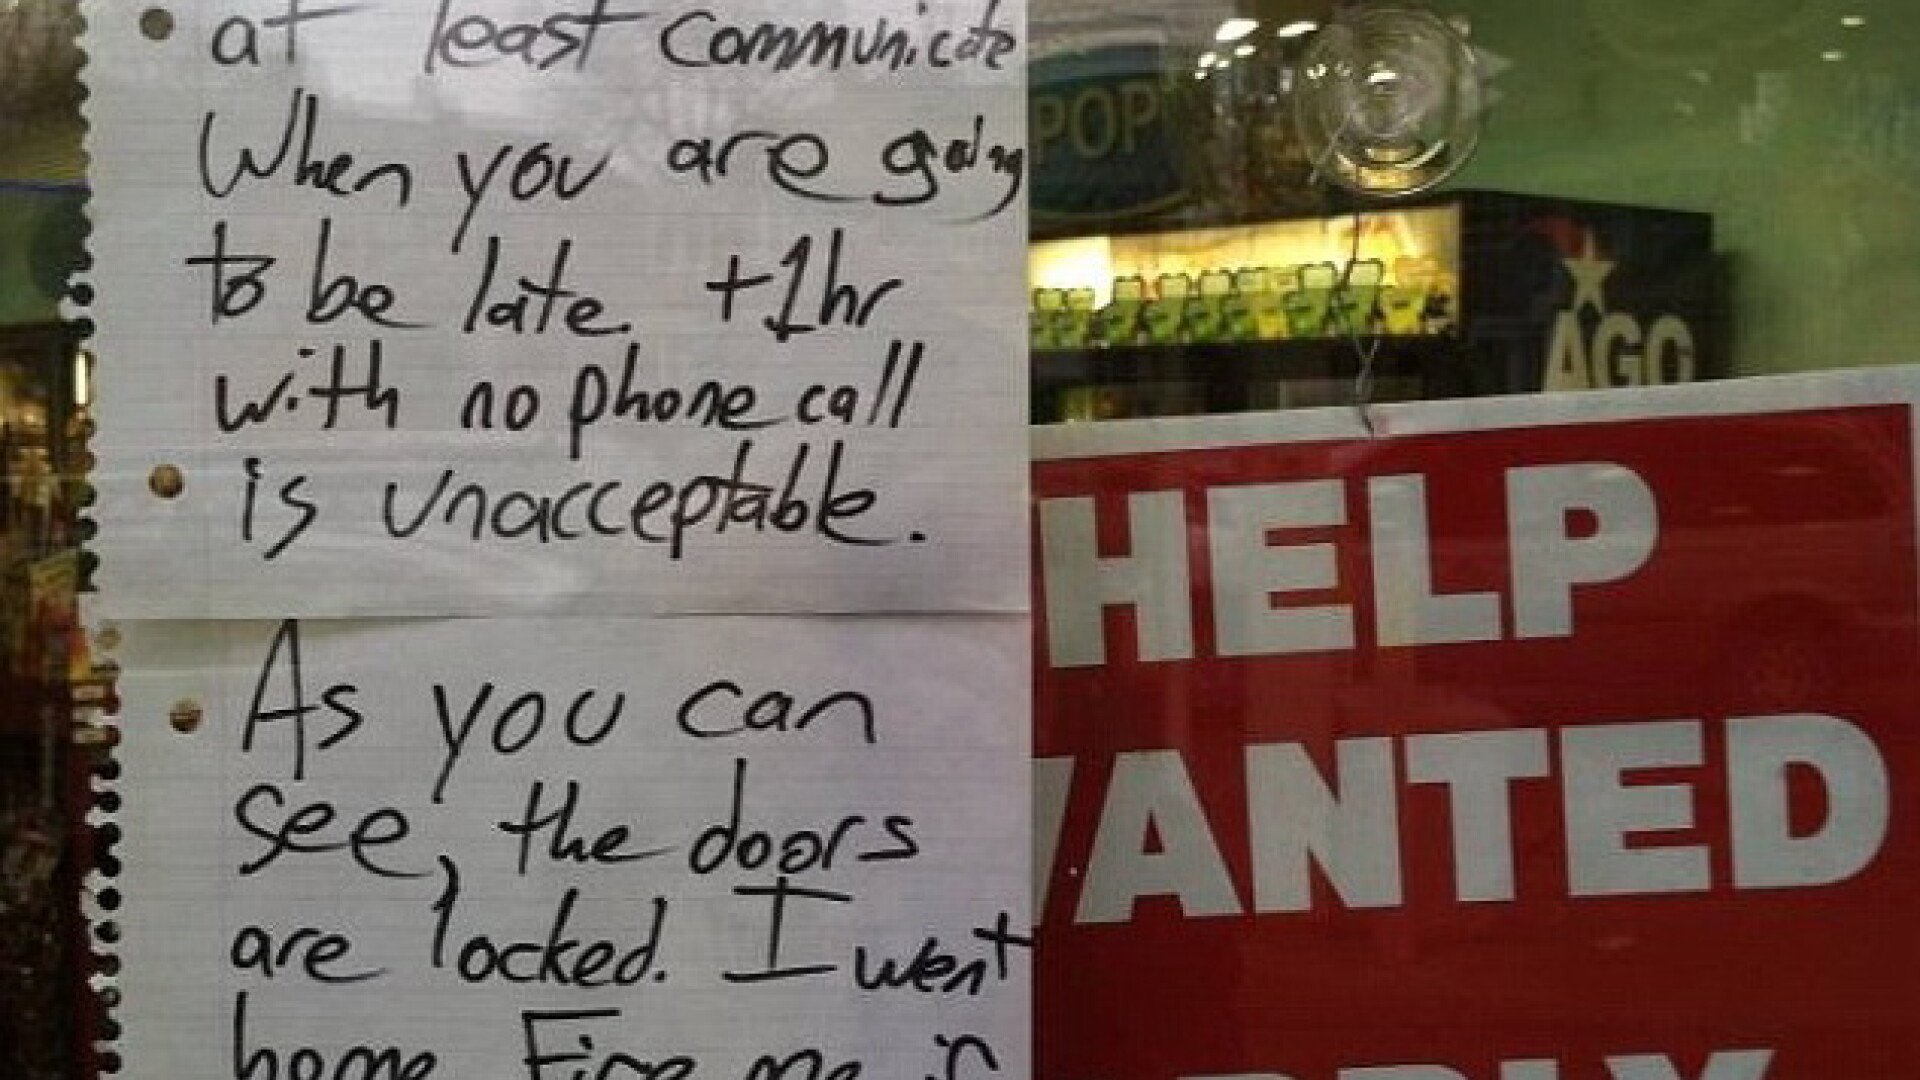 at least communicate
When you are going
to be late. +1hr
with no phone call
is unacceptable.
As you can
see, the doors
are locked. I went
home. Fire me if
POP
AGO
HELP
WANTED